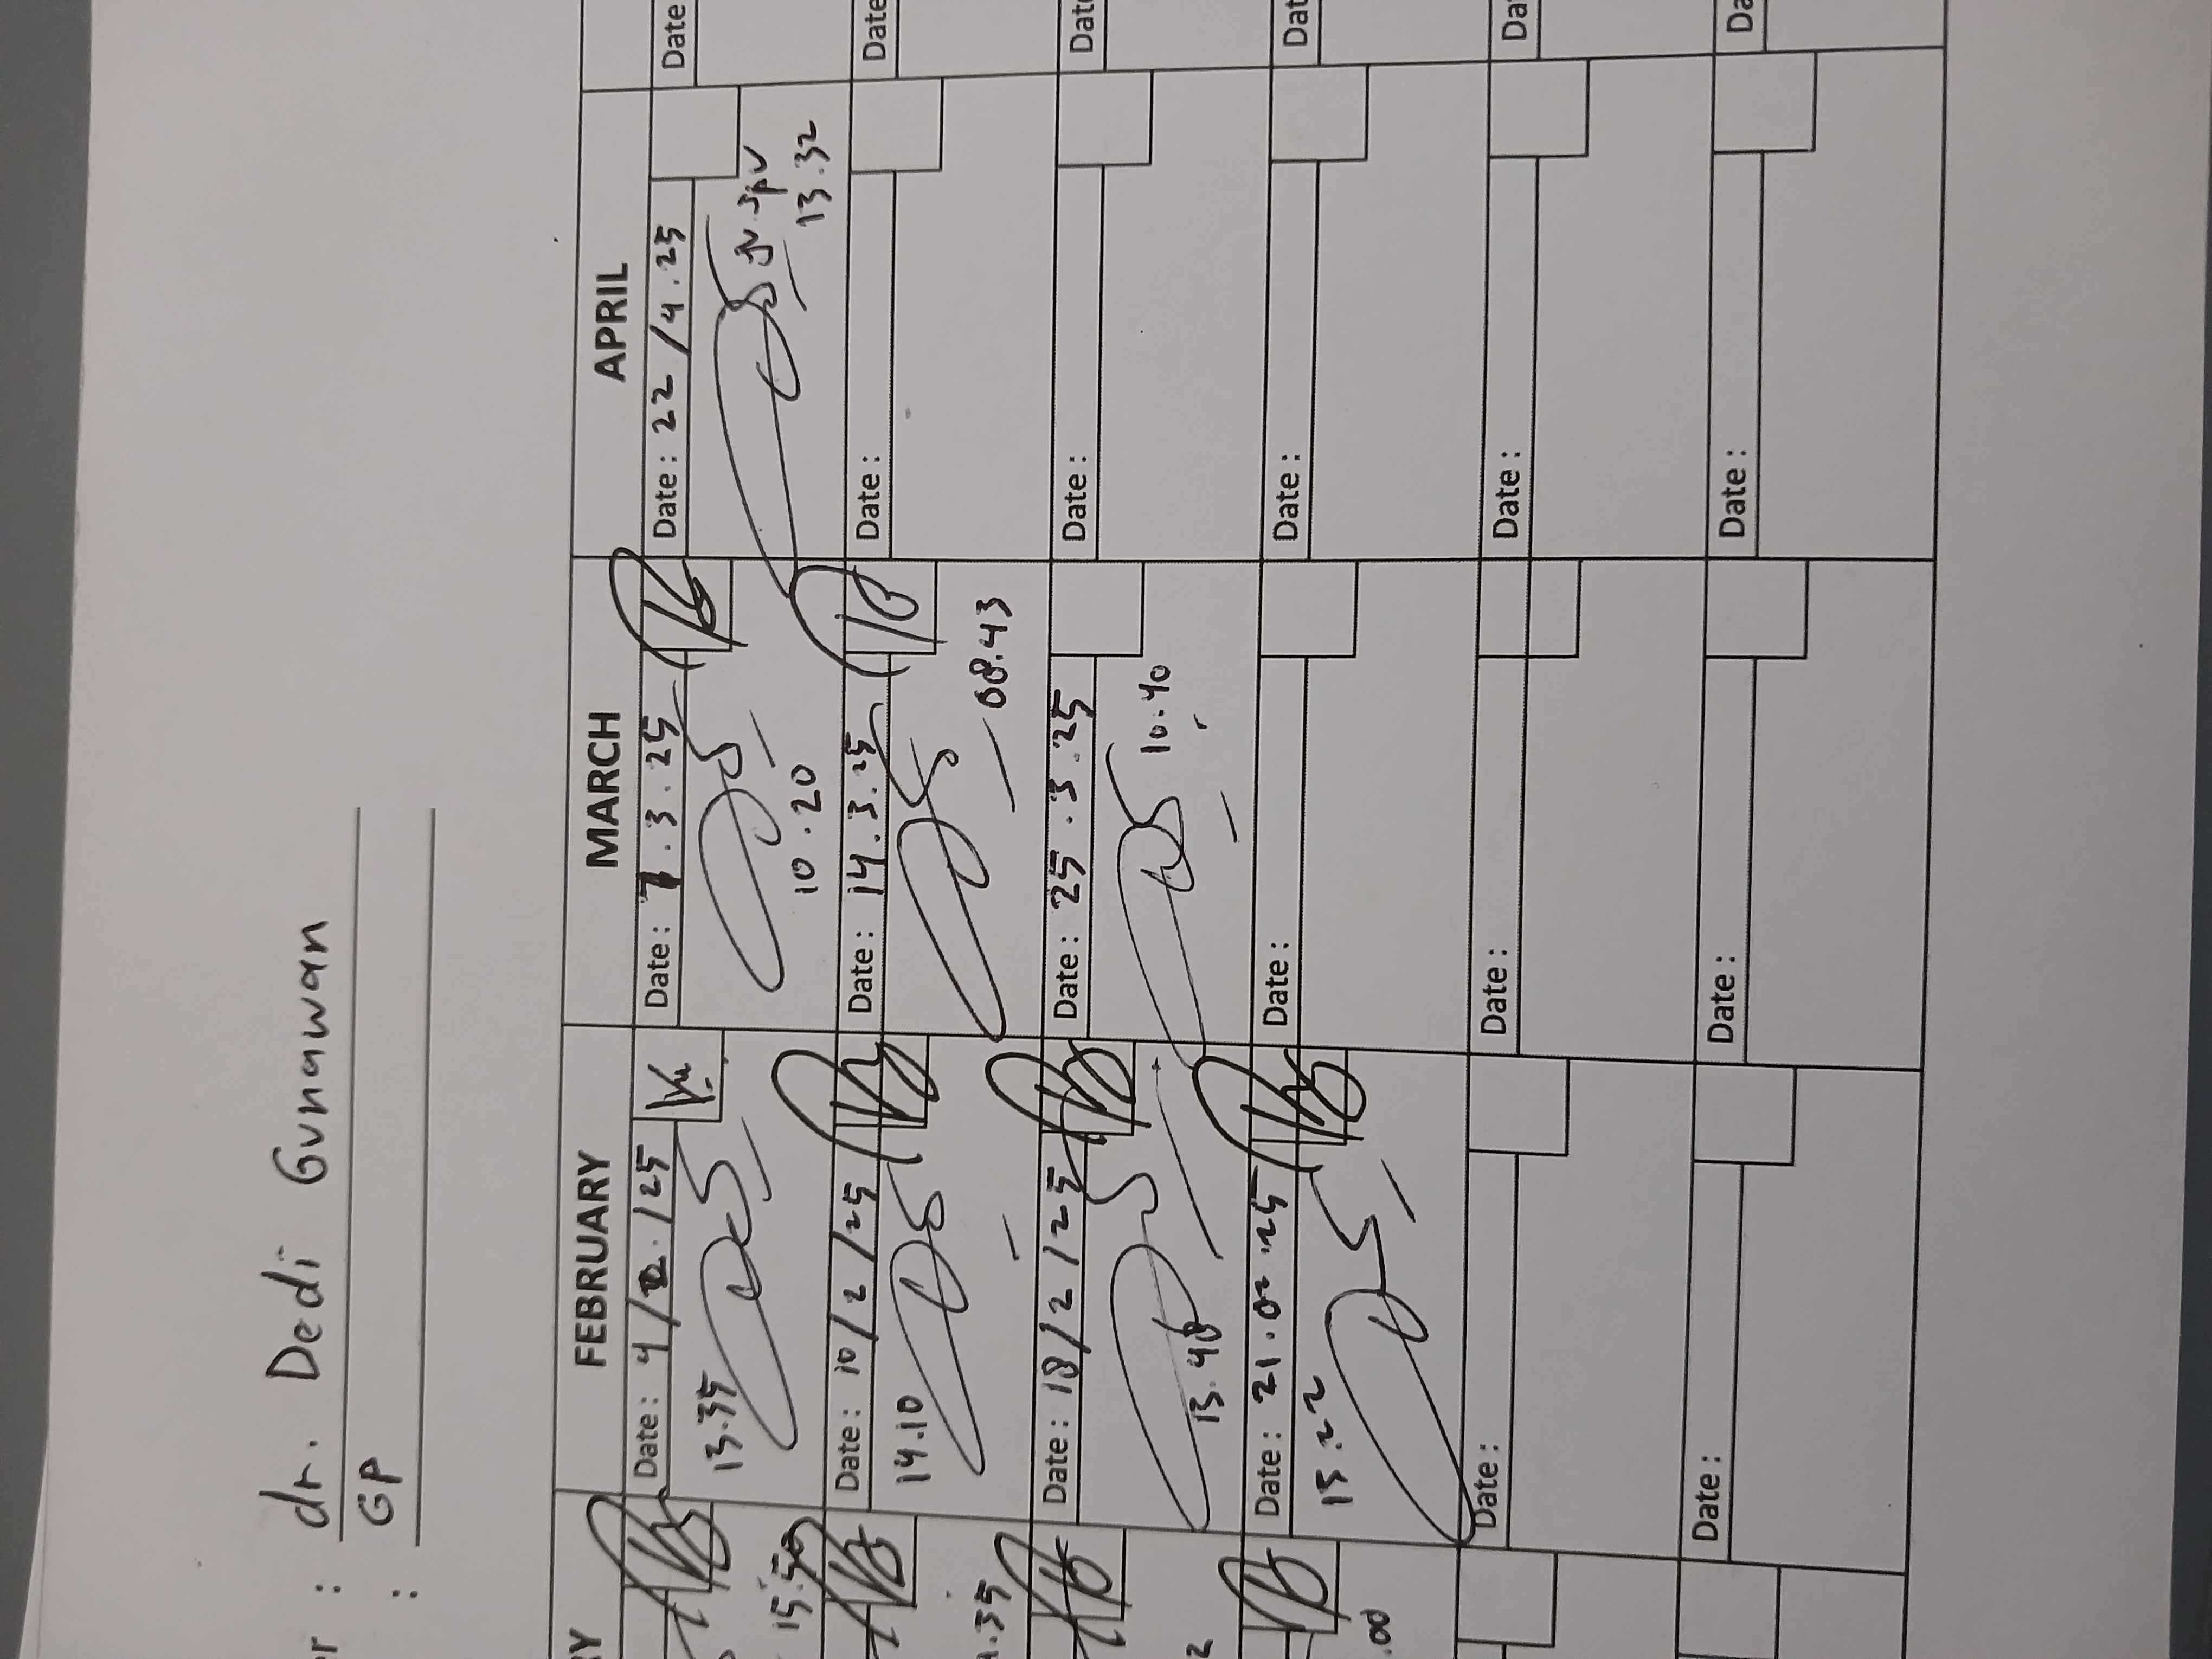 r : dr. Dedi Gunawan
: GP
RY
FEBRUARY
MARCH
APRIL
Date: 4/2/25
13.35
Date: 7.3.25
10.20
Date: 22/4.25
spv
13.32
Date
15.50
Date: 10/2/25
14.10
Date: 14.3.25
08.43
Date:
Date
.35
Date: 18/2/25
13.48
Date: 25.3.25
10.40
Date:
Dat
2
Date: 21.02.25
15.22
Date:
Date:
Dat
.00
Date:
Date:
Date:
Da
Date:
Date:
Date:
Da